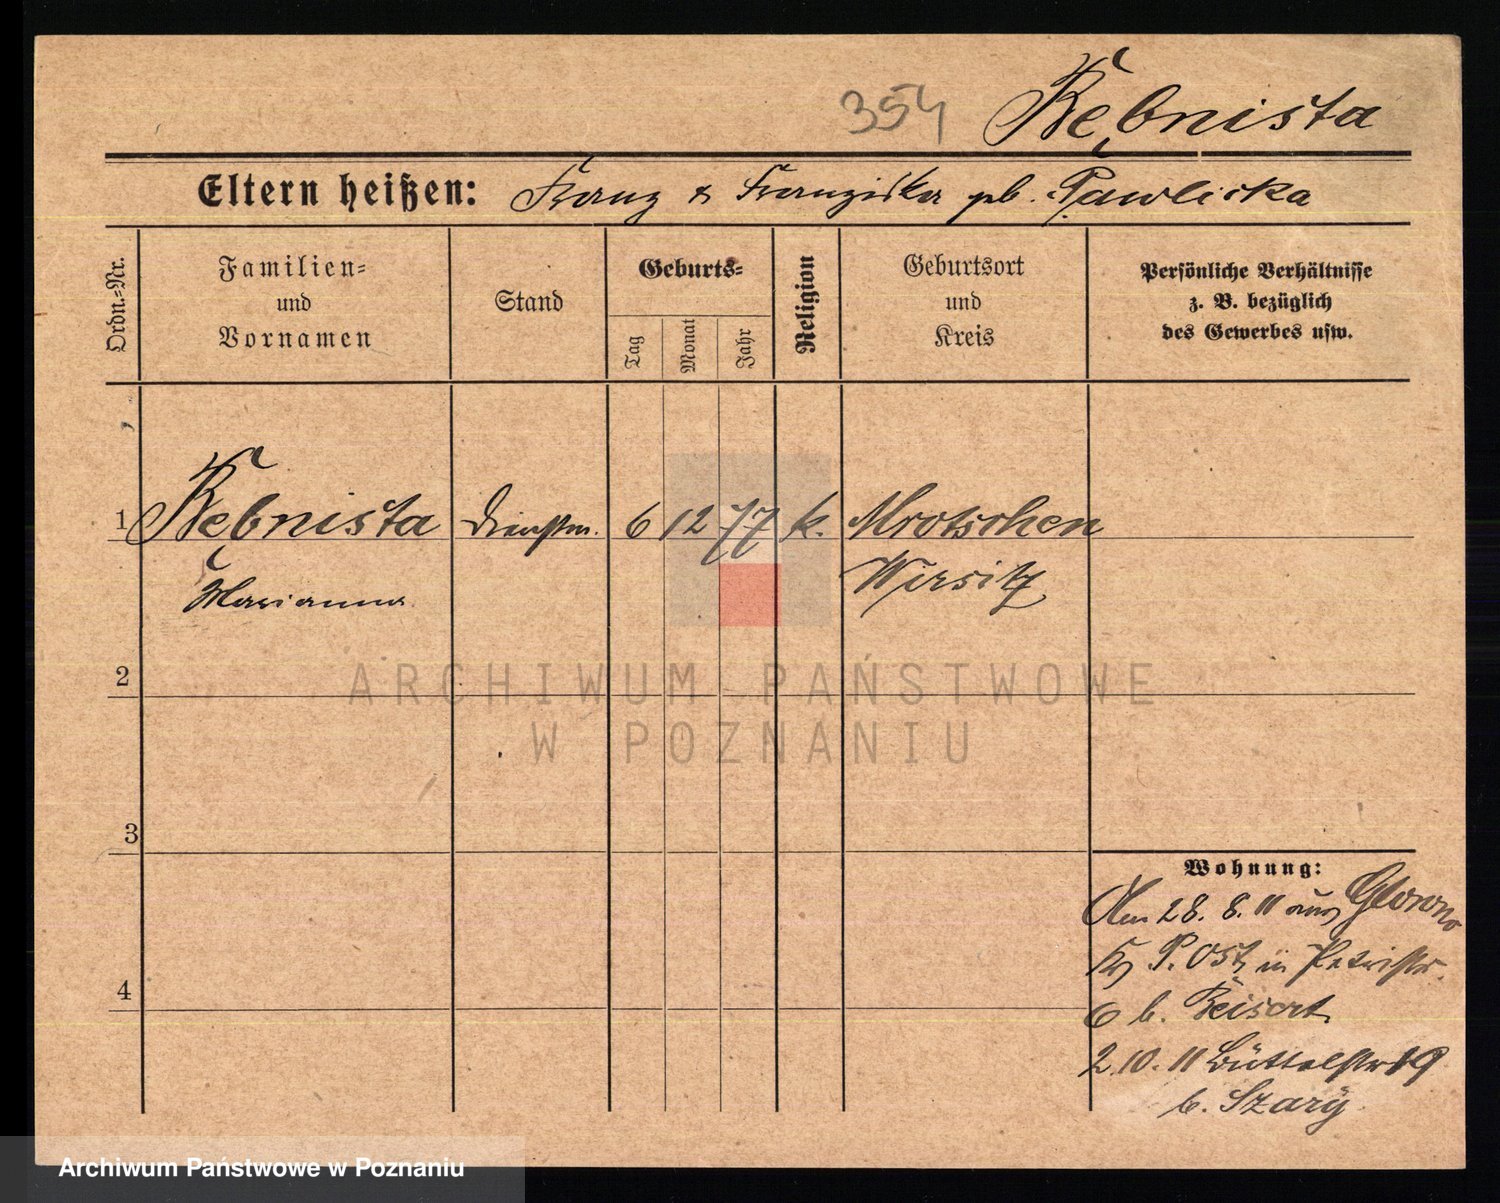 354 Kębnista
Eltern heißen: Franz & Franziska geb. Pawlicka
Ordn.-Nr.
Familien-
und
Vornamen
Stand
Geburts-
Tag
Monat
Jahr
Religion
Geburtsort
und
Kreis
Persönliche Verhältnisse
z. B. bezüglich
des Gewerbes usw.
1 Kębnista Dienstm. 6 12 77 k. Mrotschen
Marianna Wirsitz
2
ARCHIWUM PAŃSTWOWE
W POZNANIU
3
Wohnung:
Am 28. 8. 11 aus
P. Ost in Petristr.
4
6 b. Reisert
2.10.11 Büttelstr 19
b. Szary
Archiwum Państwowe w Poznaniu